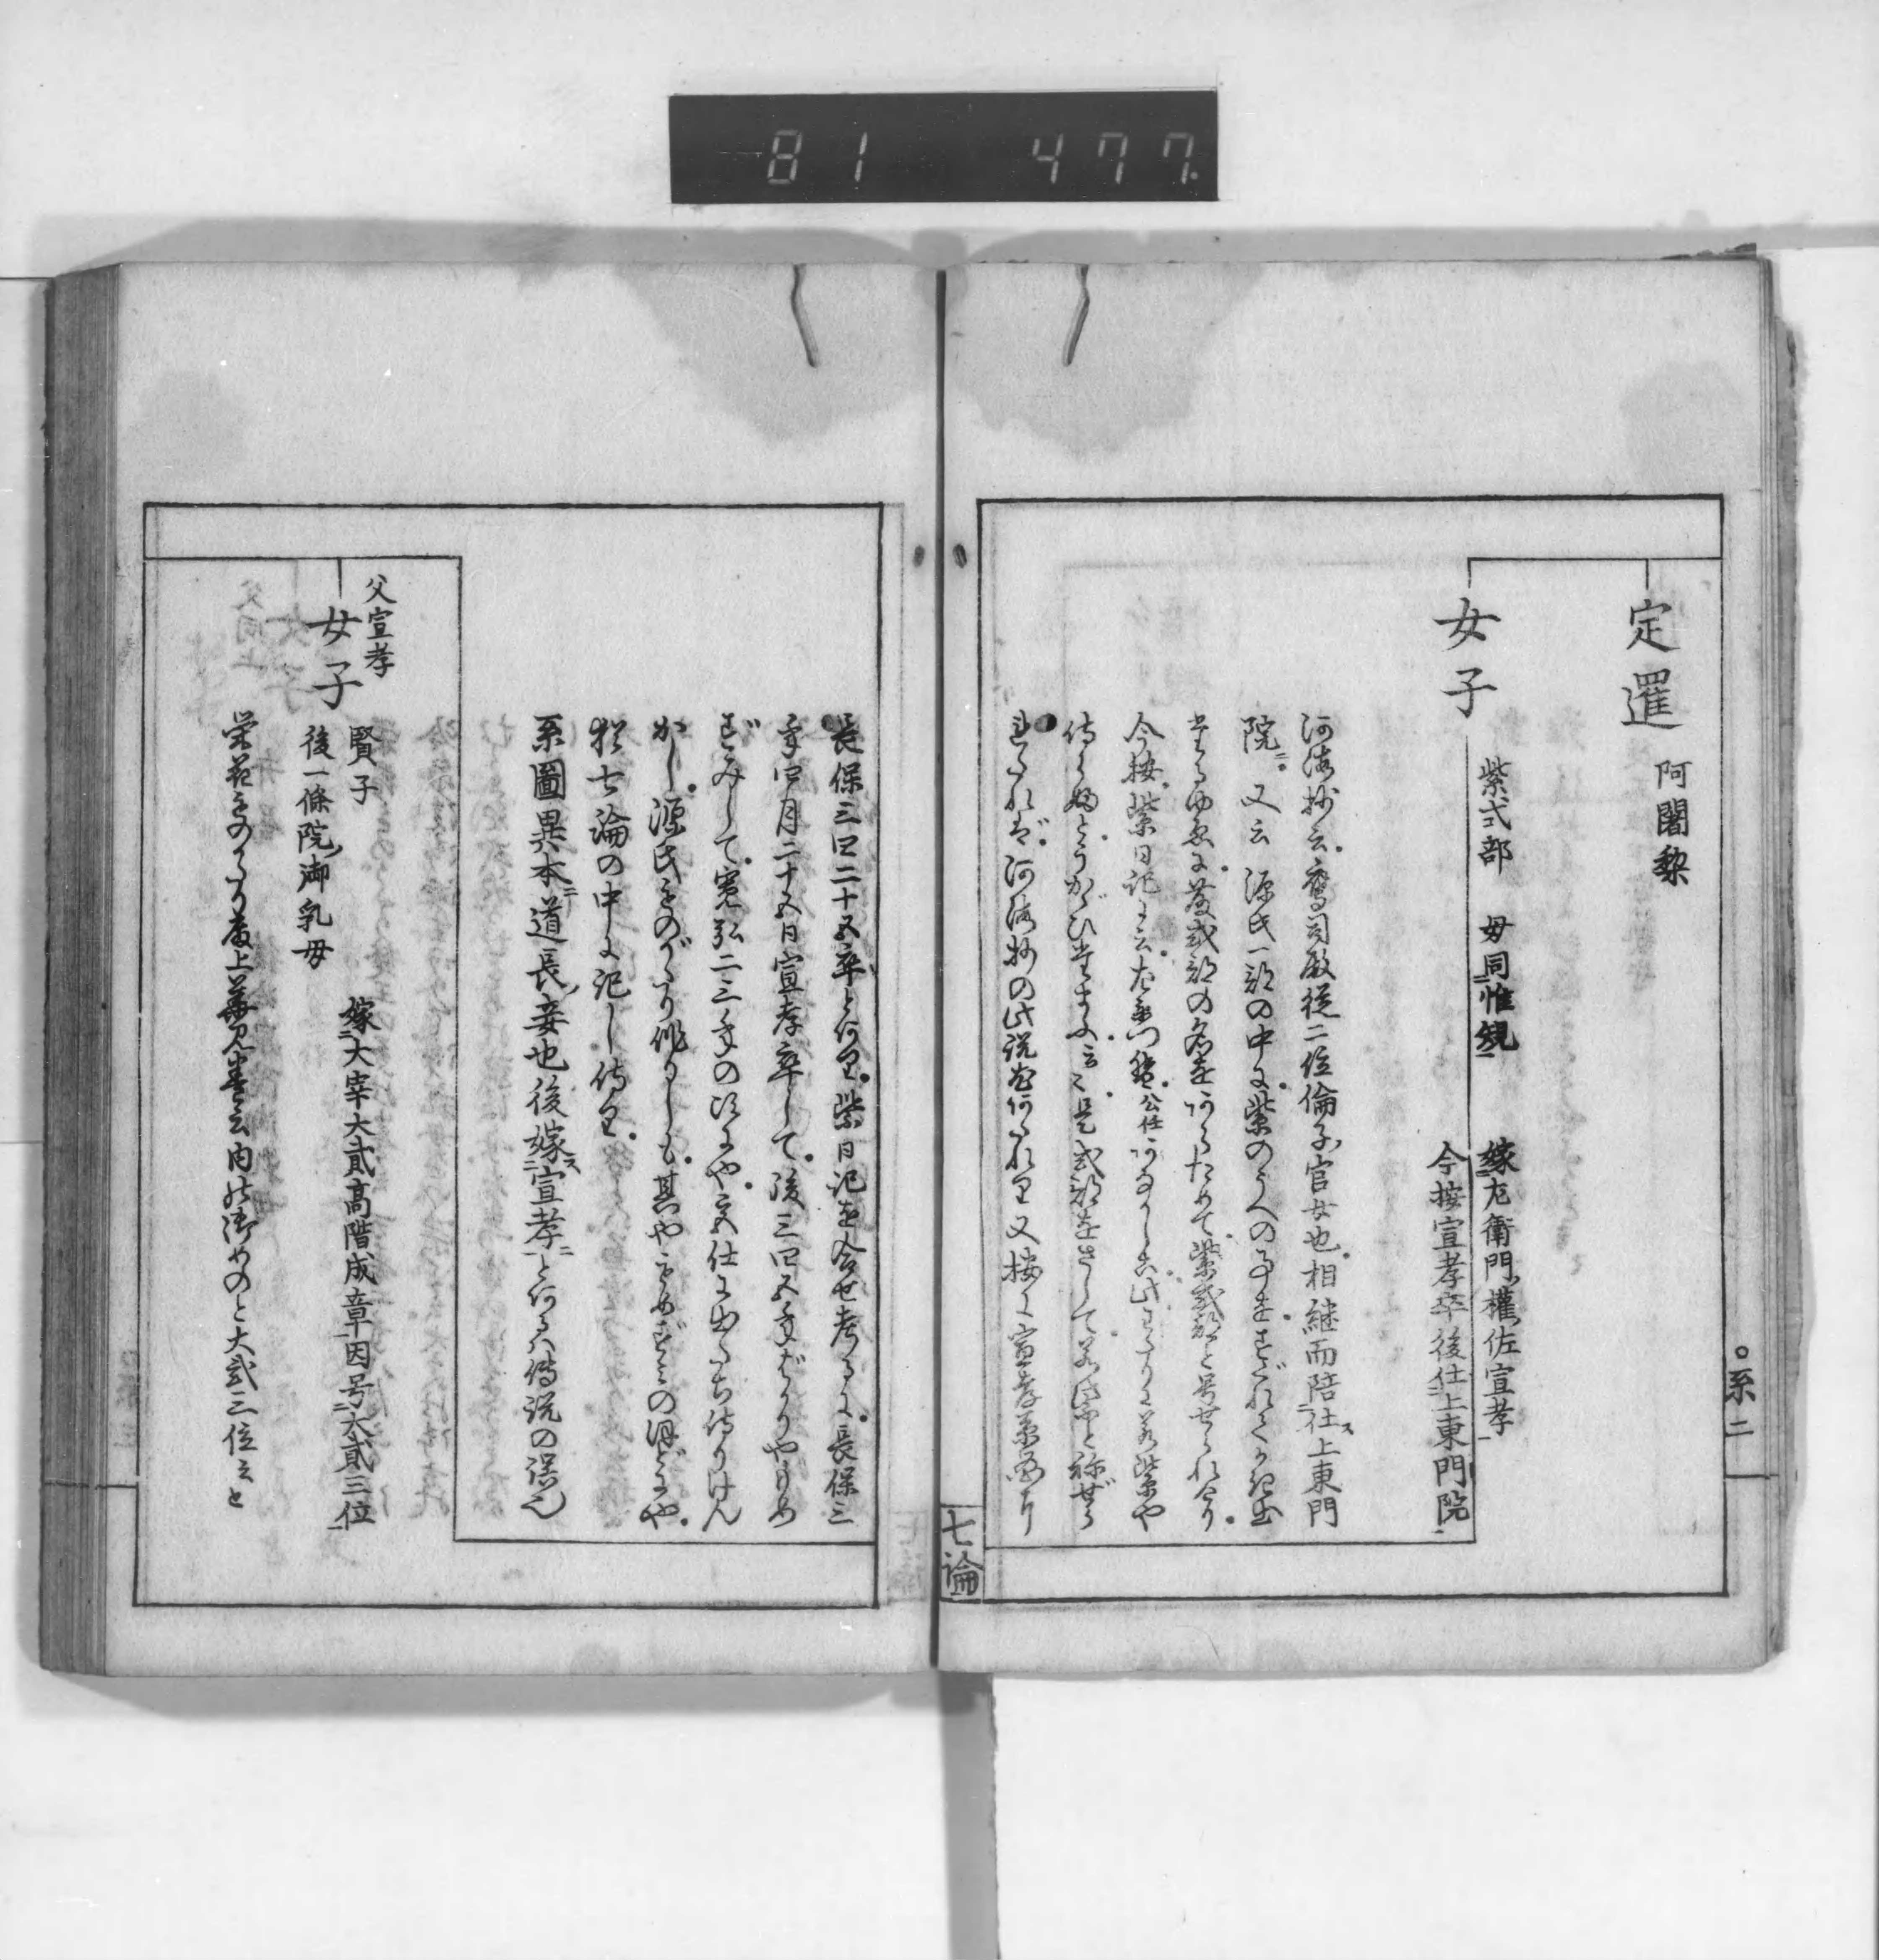 81 477.
系二
定暹
阿闍梨
女子
紫式部 母同惟規 嫁左衛門權佐宣孝
今按宣孝卒後仕上東門院
河海抄云鷹司殿従二位倫子官女也相継而陪仕上東門
院又云源氏一部の中に紫のうへの事をすぐれてかき出
たるゆゑに藤式部の名をあらためて紫式部と号せられたり
今按紫日記に云左衛門督公任あなかしこ此わたりに若紫や
侍らふとうかがひたまふ云々是式部をさして若紫と称せら
れたれば河海抄の此説さも有ぬべし又按に宣孝系図に
七論
長保三四二十五卒とあり紫日記を合せ考るに長保三
年四月二十五日宣孝卒して後三四五年ばかりやもめ
ずみして寛弘二三年の比にや宮仕に出たち侍りけん
かし源氏ものがたり作りしも其やもめずみの間にや
猶七論の中に記し侍り
系圖異本ニ道長妾也後嫁宣孝とあるハ傳説の誤也
父宣孝
女子
賢子 嫁大宰大貳高階成章因号大貳三位
後一條院御乳母
栄花ものがたり 云内の御めのと大弐三位云々